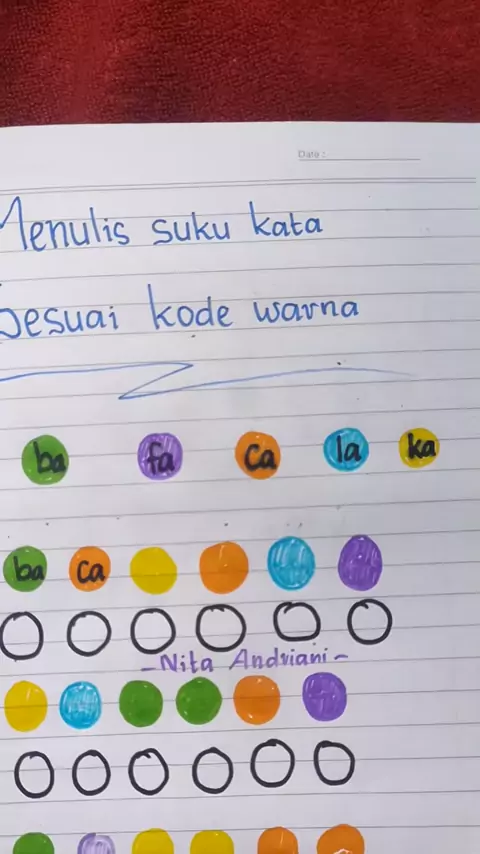 Date :
Menulis suku kata
Sesuai kode warna
ba fa ca la ka
ba ca
-Nita Andriani-